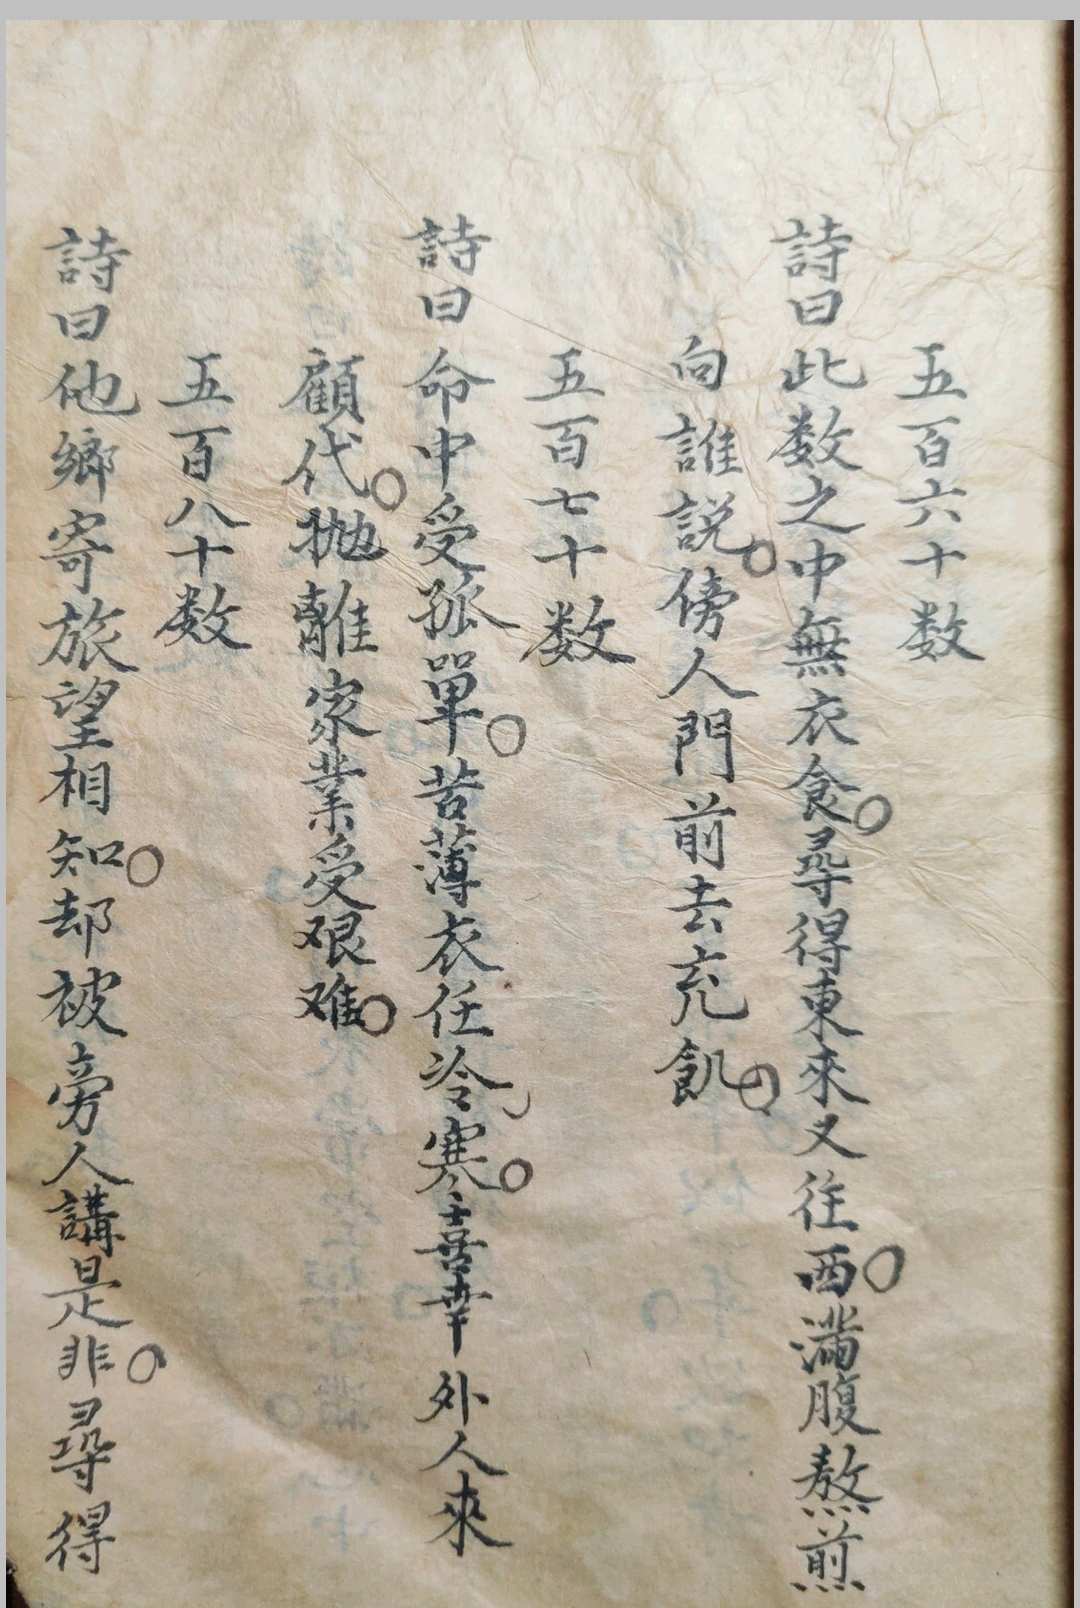 五百六十数
詩曰此数之中無衣食○尋得東來又往西○满腹熬煎
向誰説○傍人門前去充飢○
五百七十数
詩曰命中受孤單○苦薄衣任冷寒○喜幸外人來
顧代○抛離家業受艰难○
五百八十数
詩曰他鄉寄旅望相知○却被旁人講是非○尋得